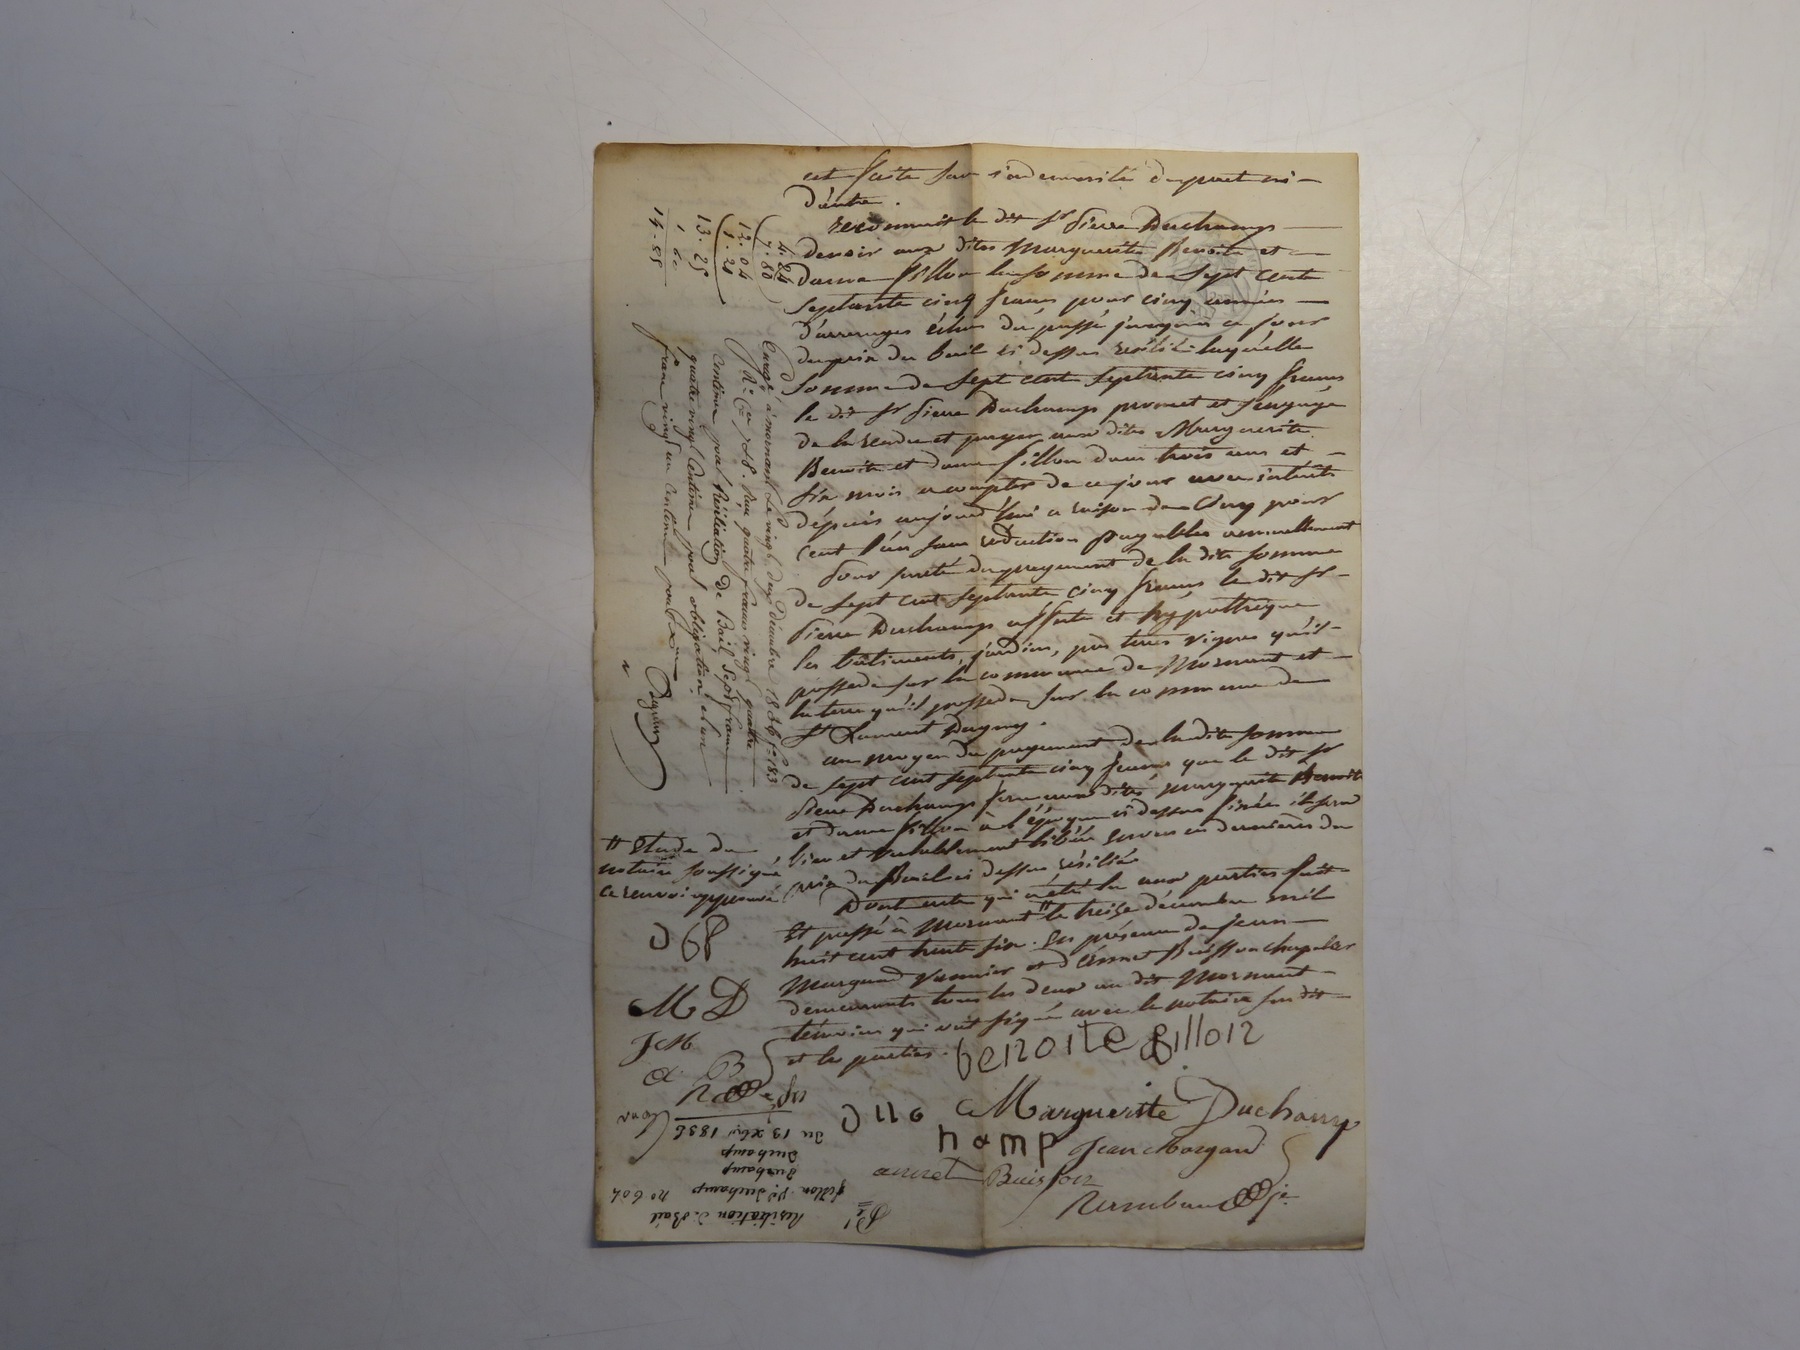 est faite sur indemnité du puct ni-
d'autre.
reconnait le dit Sr Pierre Duchamp
devoir aux dites Marguerite Benoite et
dame fillon la somme de Sept cent
septante cinq francs pour cinq années
d'arrerages échus du passé jusqu'à ce jour
du prix du bail ci dessus résilié laquelle
somme de Sept cent septante cinq francs
le dit Sr Pierre Duchamp promet et s'engage
de la rendre et payer aux dites Marguerite
Benoite et dame fillon dans trois ans et
six mois a compter de ce jour avec intérêts
dépuis aujourd'hui a raison de Cinq pour
cent l'an sans réduction payables annuellement
Pour sureté du payement de la dite somme
de Sept cent septante cinq francs le dit Sr
Pierre Duchamp affecte et hypothèque
les bâtiments, jardin, prés terres vignes qu'il
possede sur la commune de Mornant et
la terre qu'il possede sur la commune de
St Laurent Dagny.
au moyen du payement de la dite somme
de sept cent septante cinq francs que le dit Sr
Pierre Duchamp fera aux dites Marguerite Benoite
et dame fillon à l'époque ci dessus fixée il sera
bien et valablement libéré envers ces dernières du
prix du Bail ci dessus résilié
Dont acte qui a été lu aux parties fait
Et passé à Mornant # le treize décembre mil
huit cent trente six. En présence de Jean
Margand vannier et d'Annet Buisson chapelier
demeurants tous les deux au dit Mornant
témoins qui ont signé avec le notaire susdit
et les parties.
benoite fillon
Marguerite Duchamp
D u c
h a m p
Jean Morgand
annet Buisson
# Etude du
notaire soussigné
ce renvoi approuvé
M D
J M
a B
4. 24
7. 80
12. 04
1. 20
13. 25
1. 60
14. 85
Enregé à mornant le vingt deux Décembre 1836 fo 183
Ro Ce 7 & 8. Reçu quatre francs vingt quatre
centimes pour Résiliation De Bail, Sept francs
quatre vingt Centimes pour obligation et un
franc vingt un centimes pour
Résiliation de Bail
fillon Ve Duchamp no 604
Duchamp
Duchamp
du 13 xbre 1836